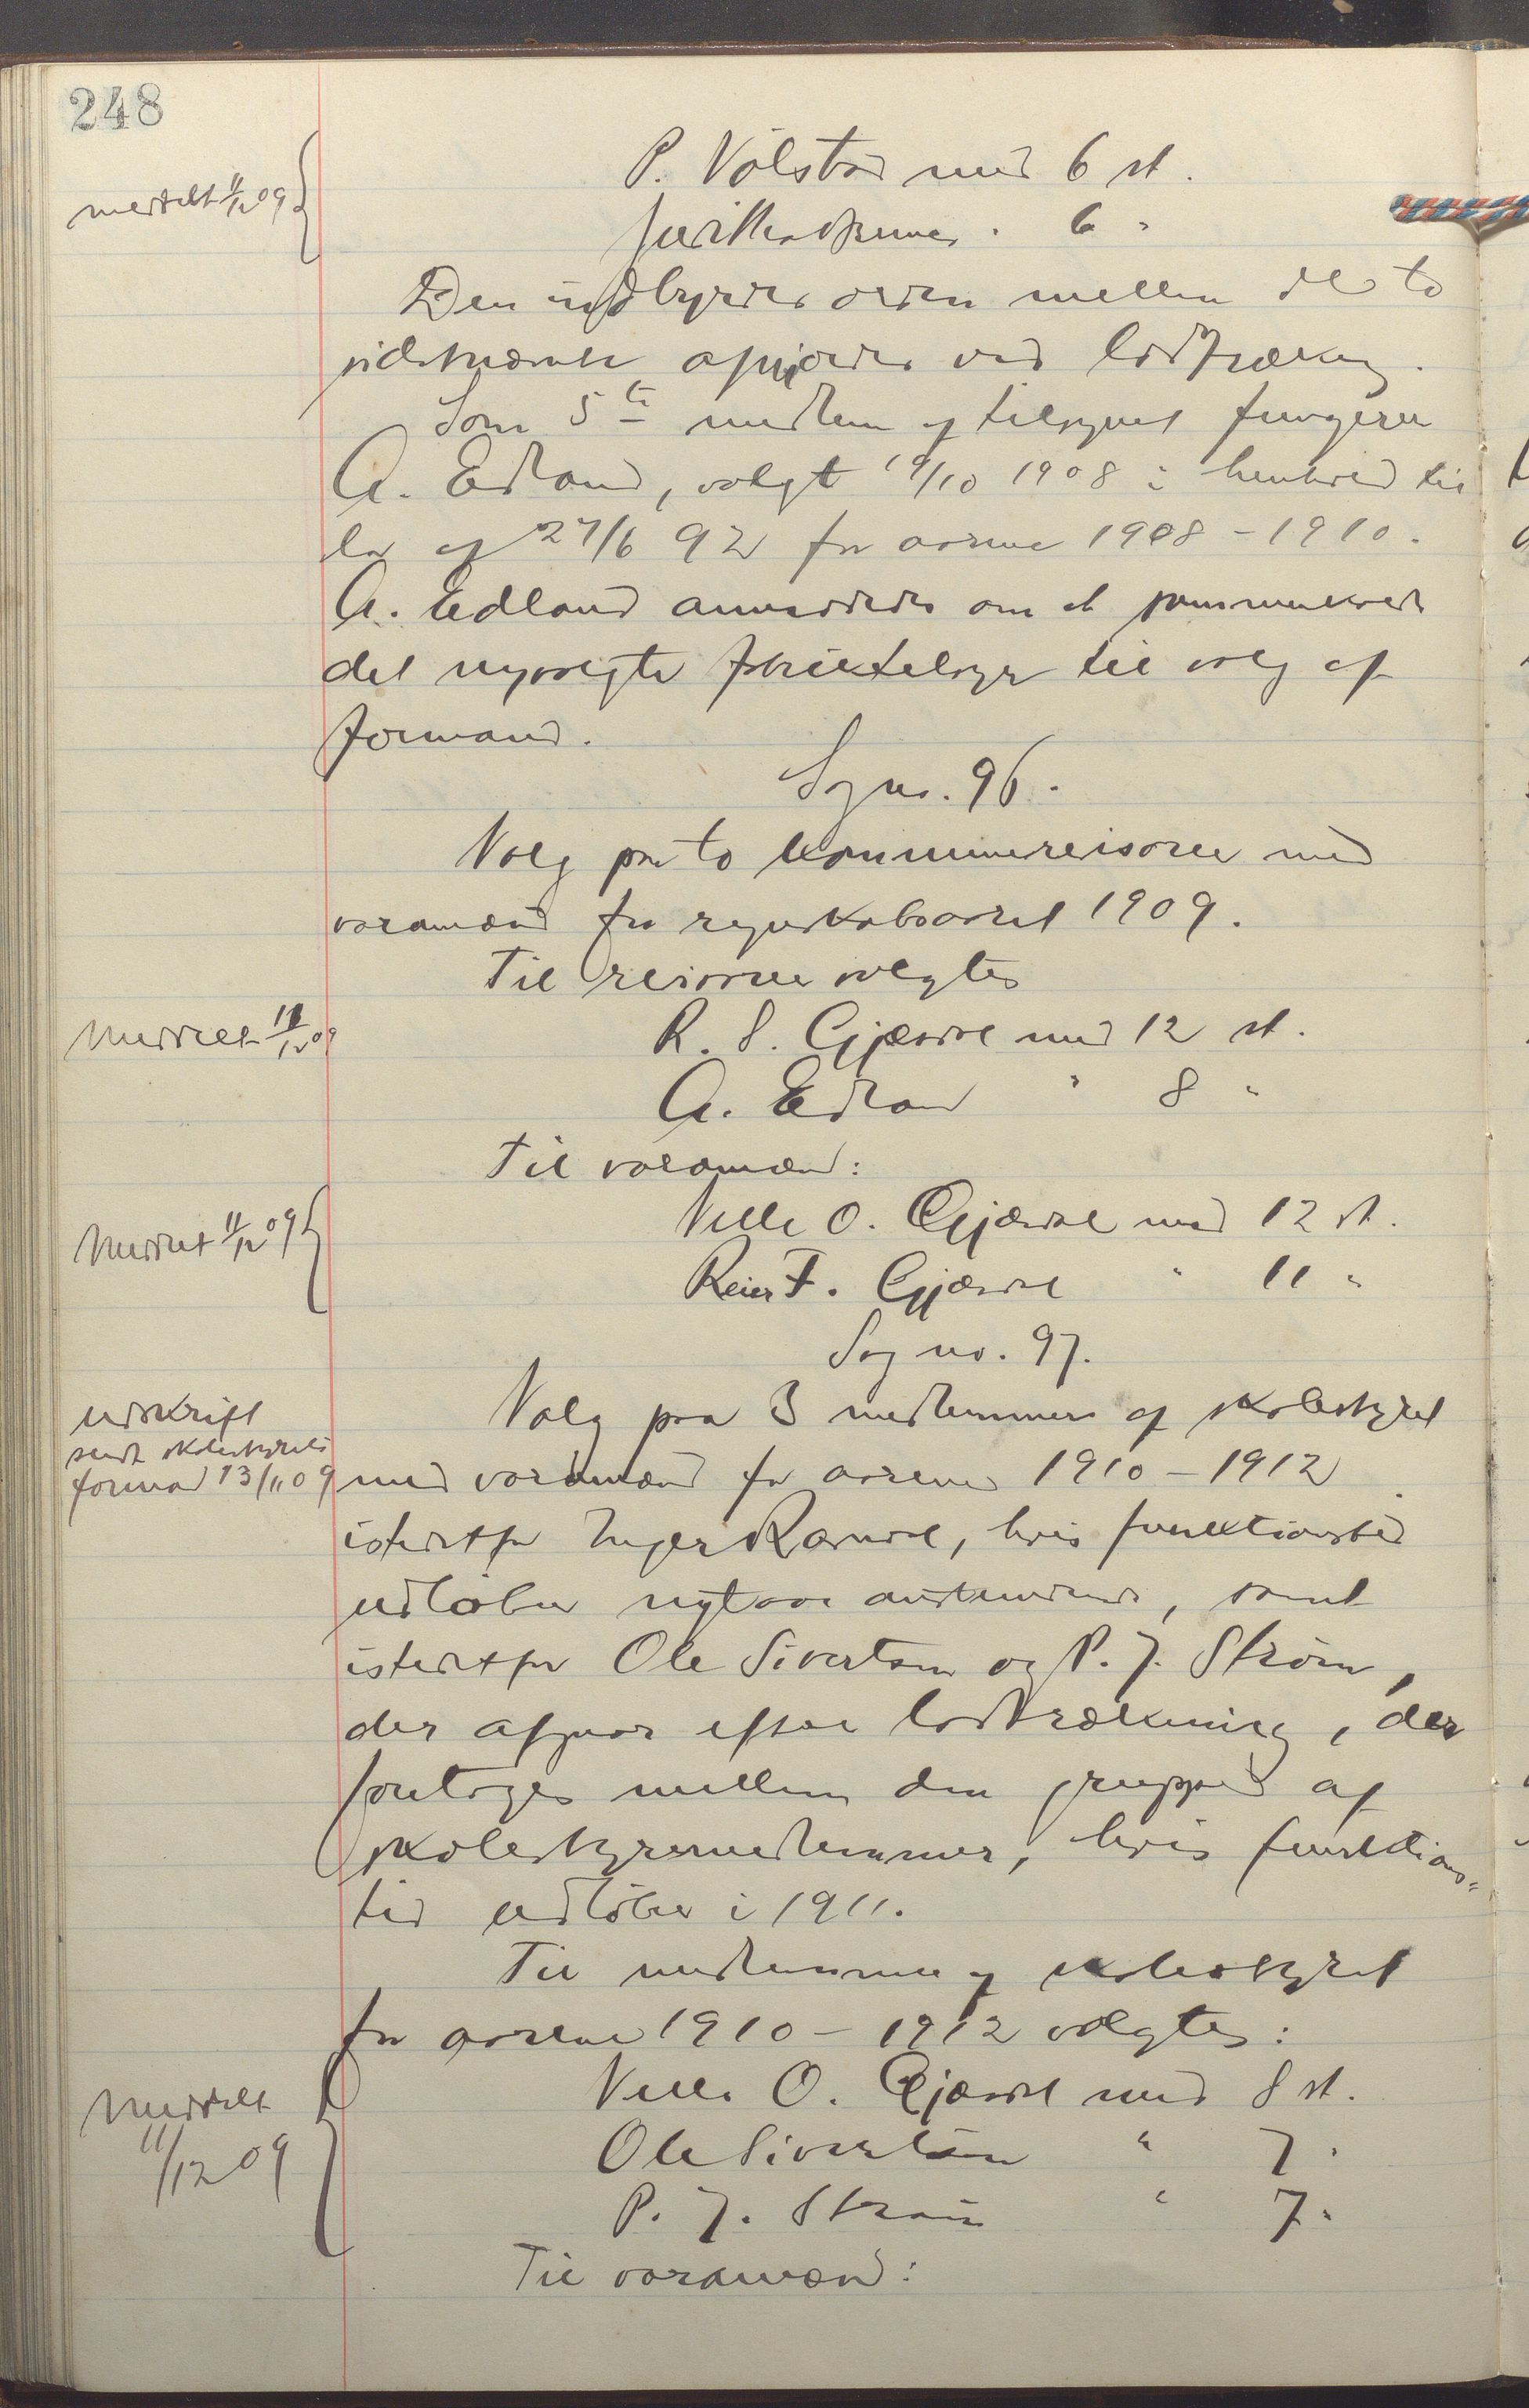 248
meddelt 11/12 09
P. Vølstad med 6 st.
" 6 "
Den indbyrdes orden mellem de to
sidstnævnte afgjordes ved lodtrækning.
Som 5te medlem af tilsynet fungerer
A. Edland, valgt 19/10 1908 i henhold til
lov af 27/6 92 for aarene 1908-1910.
A. Edland anmodedes om at sammenkalde
det nyvalgte tilsyn til valg af
formand.
Sag no. 96.
Valg paa to kommunerevisorer med
varamænd for regnskabsaaret 1909.
Til revisorer valgtes
Meddelt 11/12 09
R. S. Gjæsdal med 12 st.
A. Edland " 8 "
Til varamænd:
Meddelt 11/12 09
Velle O. Gjæsdal med 12 st.
Reier F. Gjæsdal " 11 "
Sag no. 97.
udskrift
sendt skolestyrets
formand 13/11 09
Valg paa 3 medlemmer af skolestyret
med varamænd for aarene 1910-1912
istedetfor Inger Ravndal, hvis funktionstid
udløber nytaar anstundende, samt
istedetfor Ole Sivertsen og P. J. Strøm,
der afgaar efter lodtrækning, der
foretoges mellem den gruppe af
skolestyremedlemmer, hvis funktions=
tid udløber i 1911.
Til medlemmer af skolestyret
for aarene 1910-1912 valgtes:
Meddelt
11/12 09
Velle O. Gjæsdal med 8 st.
Ole Sivertsen " 7 "
P. J. Strøm " 7 "
Til varamænd: